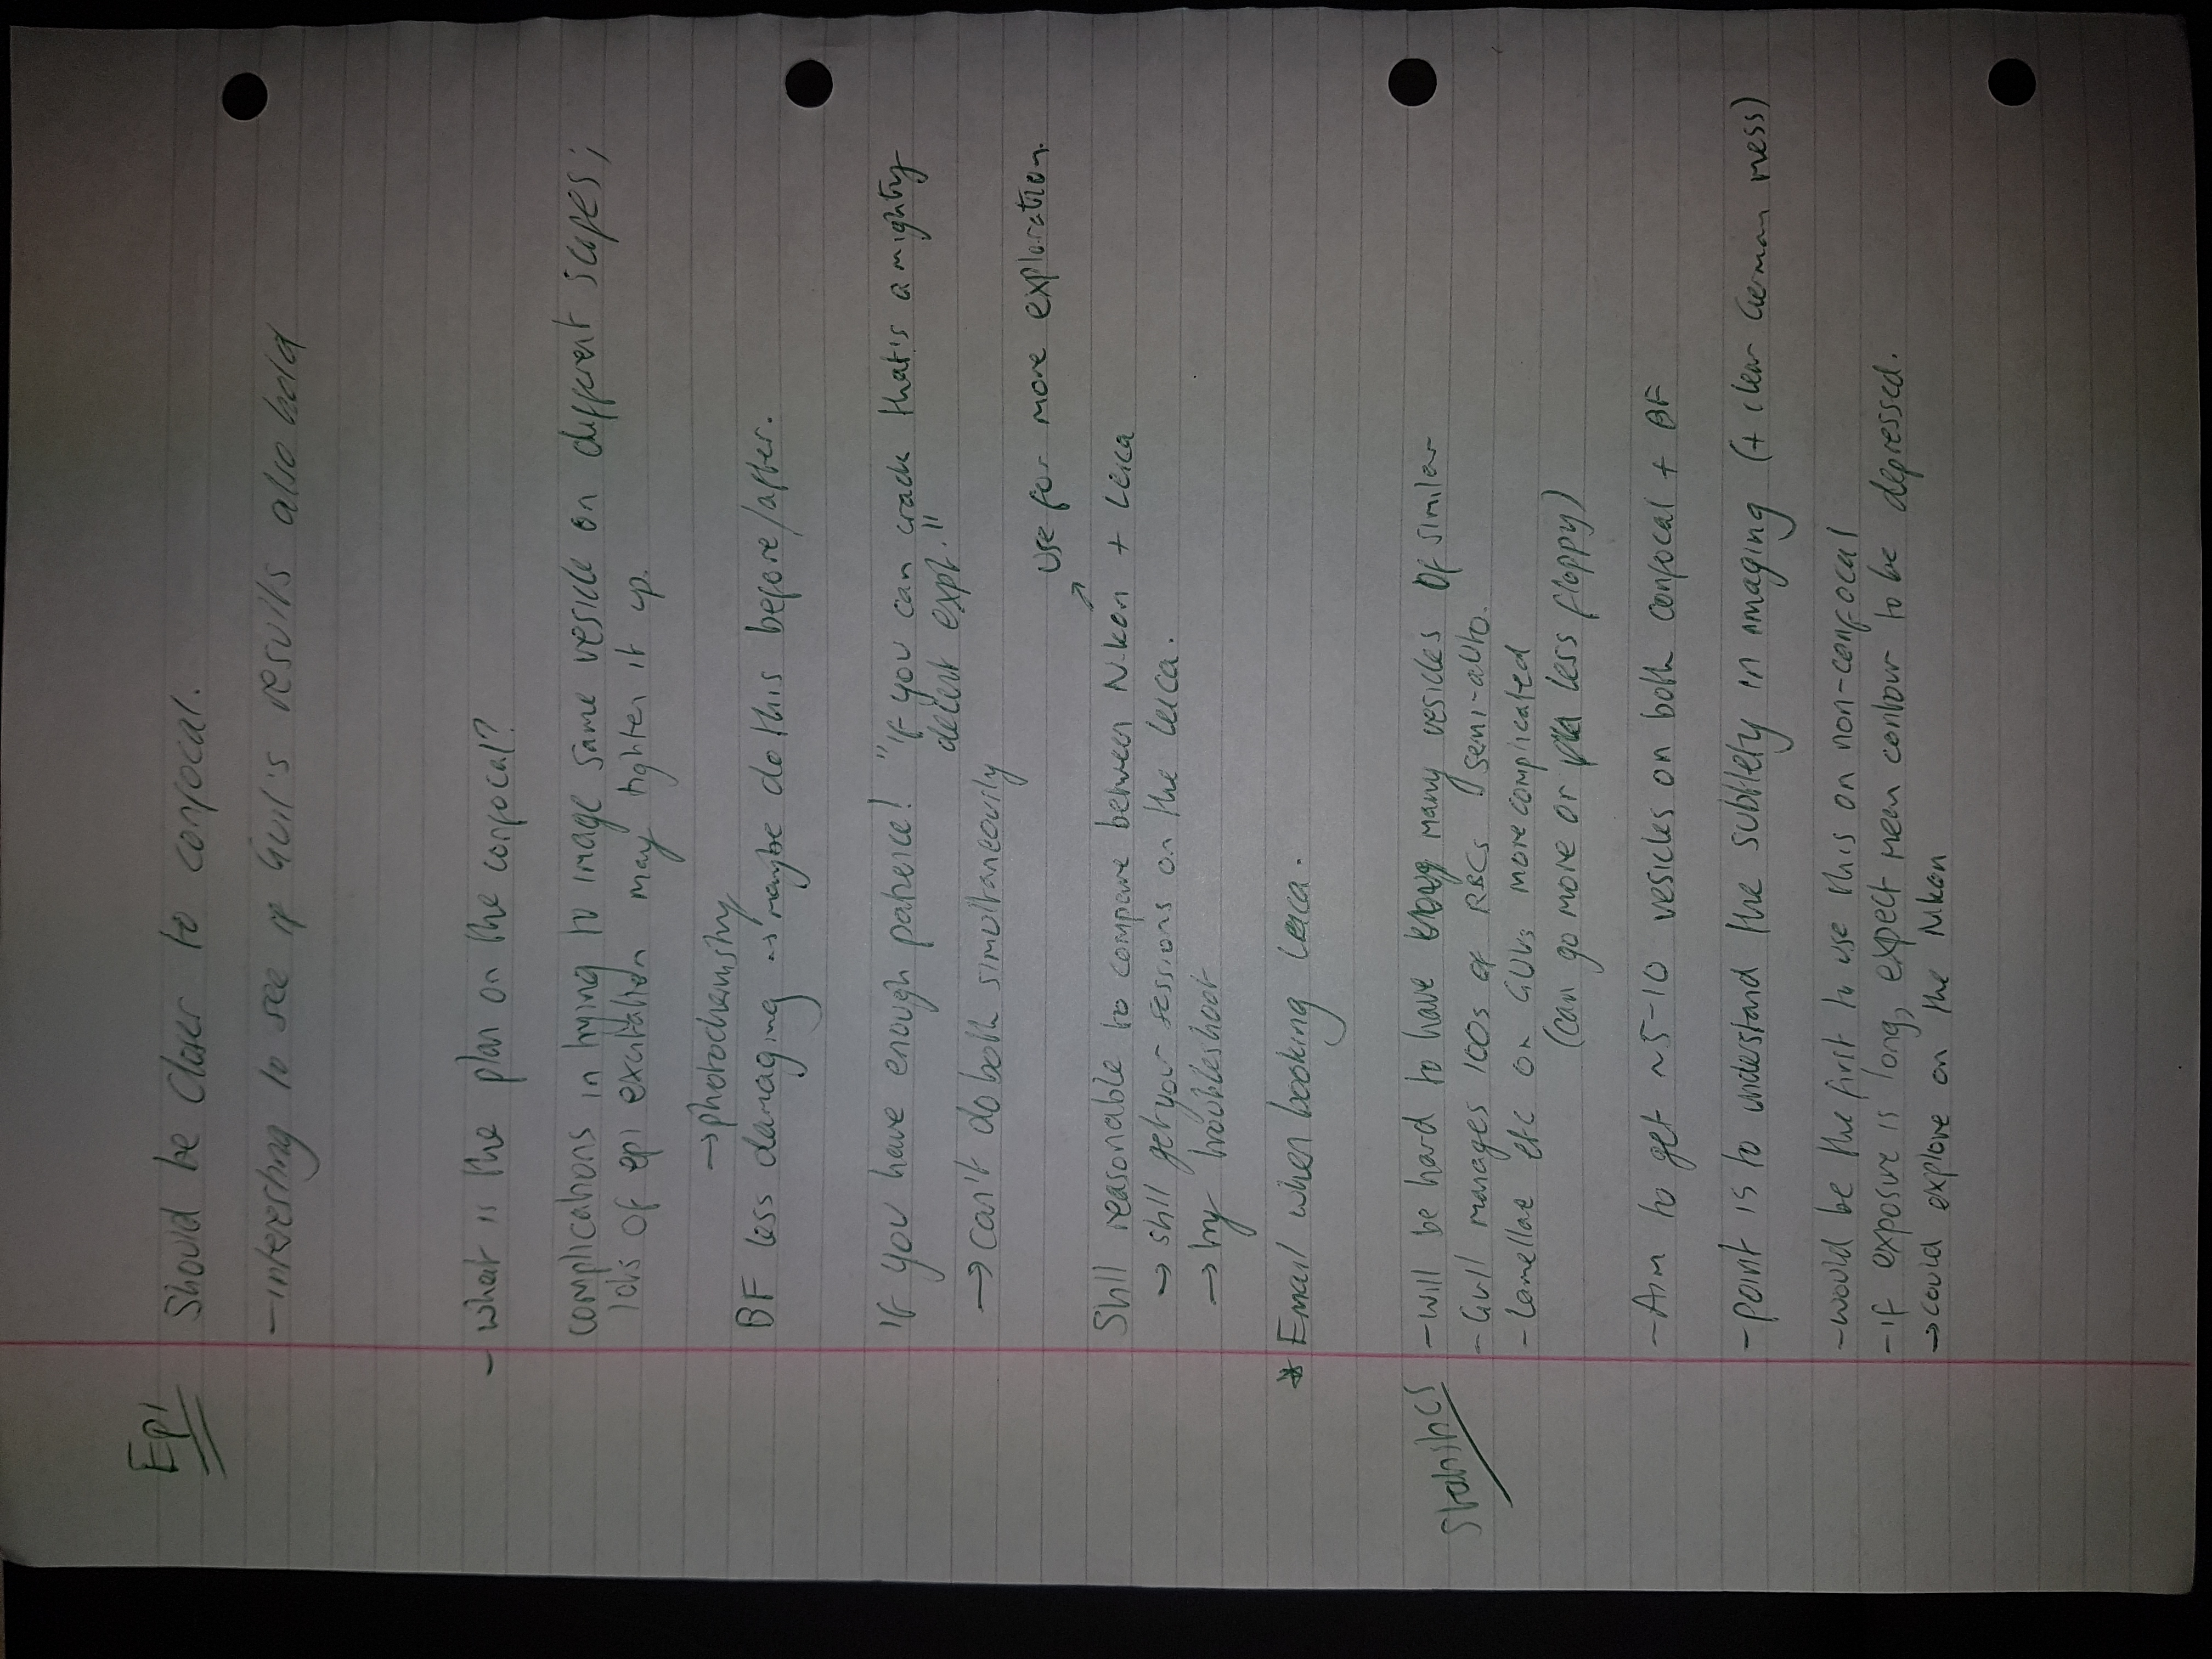 Epi
Should be closer to confocal.
- interesting to see if Guil's results also hold
- what is the plan on the confocal?
complications in trying to image same vesicle on different scopes;
lots of epi excitation may tighten it up.
→ photochemistry
BF less damaging → maybe do this before/after.
If you have enough patience! "if you can crack that's a mighty
decent expt."
→ can't do both simultaneously
use for more exploration.
↗
Still reasonable to compare between Nikon + Leica
→ still get your sessions on the Leica.
→ try troubleshoot
* Email when booking Leica.
Statistics
- will be hard to have many vesicles of similar
- Guil manages 100s of RBCs semi-auto.
- Lamellae etc on GUVs more complicated
(can go more or less floppy)
- Aim to get ~5-10 vesicles on both confocal + BF
- point is to understand the subtlety in imaging (+ clear German mess)
- would be the first to use this on non-confocal
- if exposure is long, expect mean contour to be depressed.
→ could explore on the Nikon